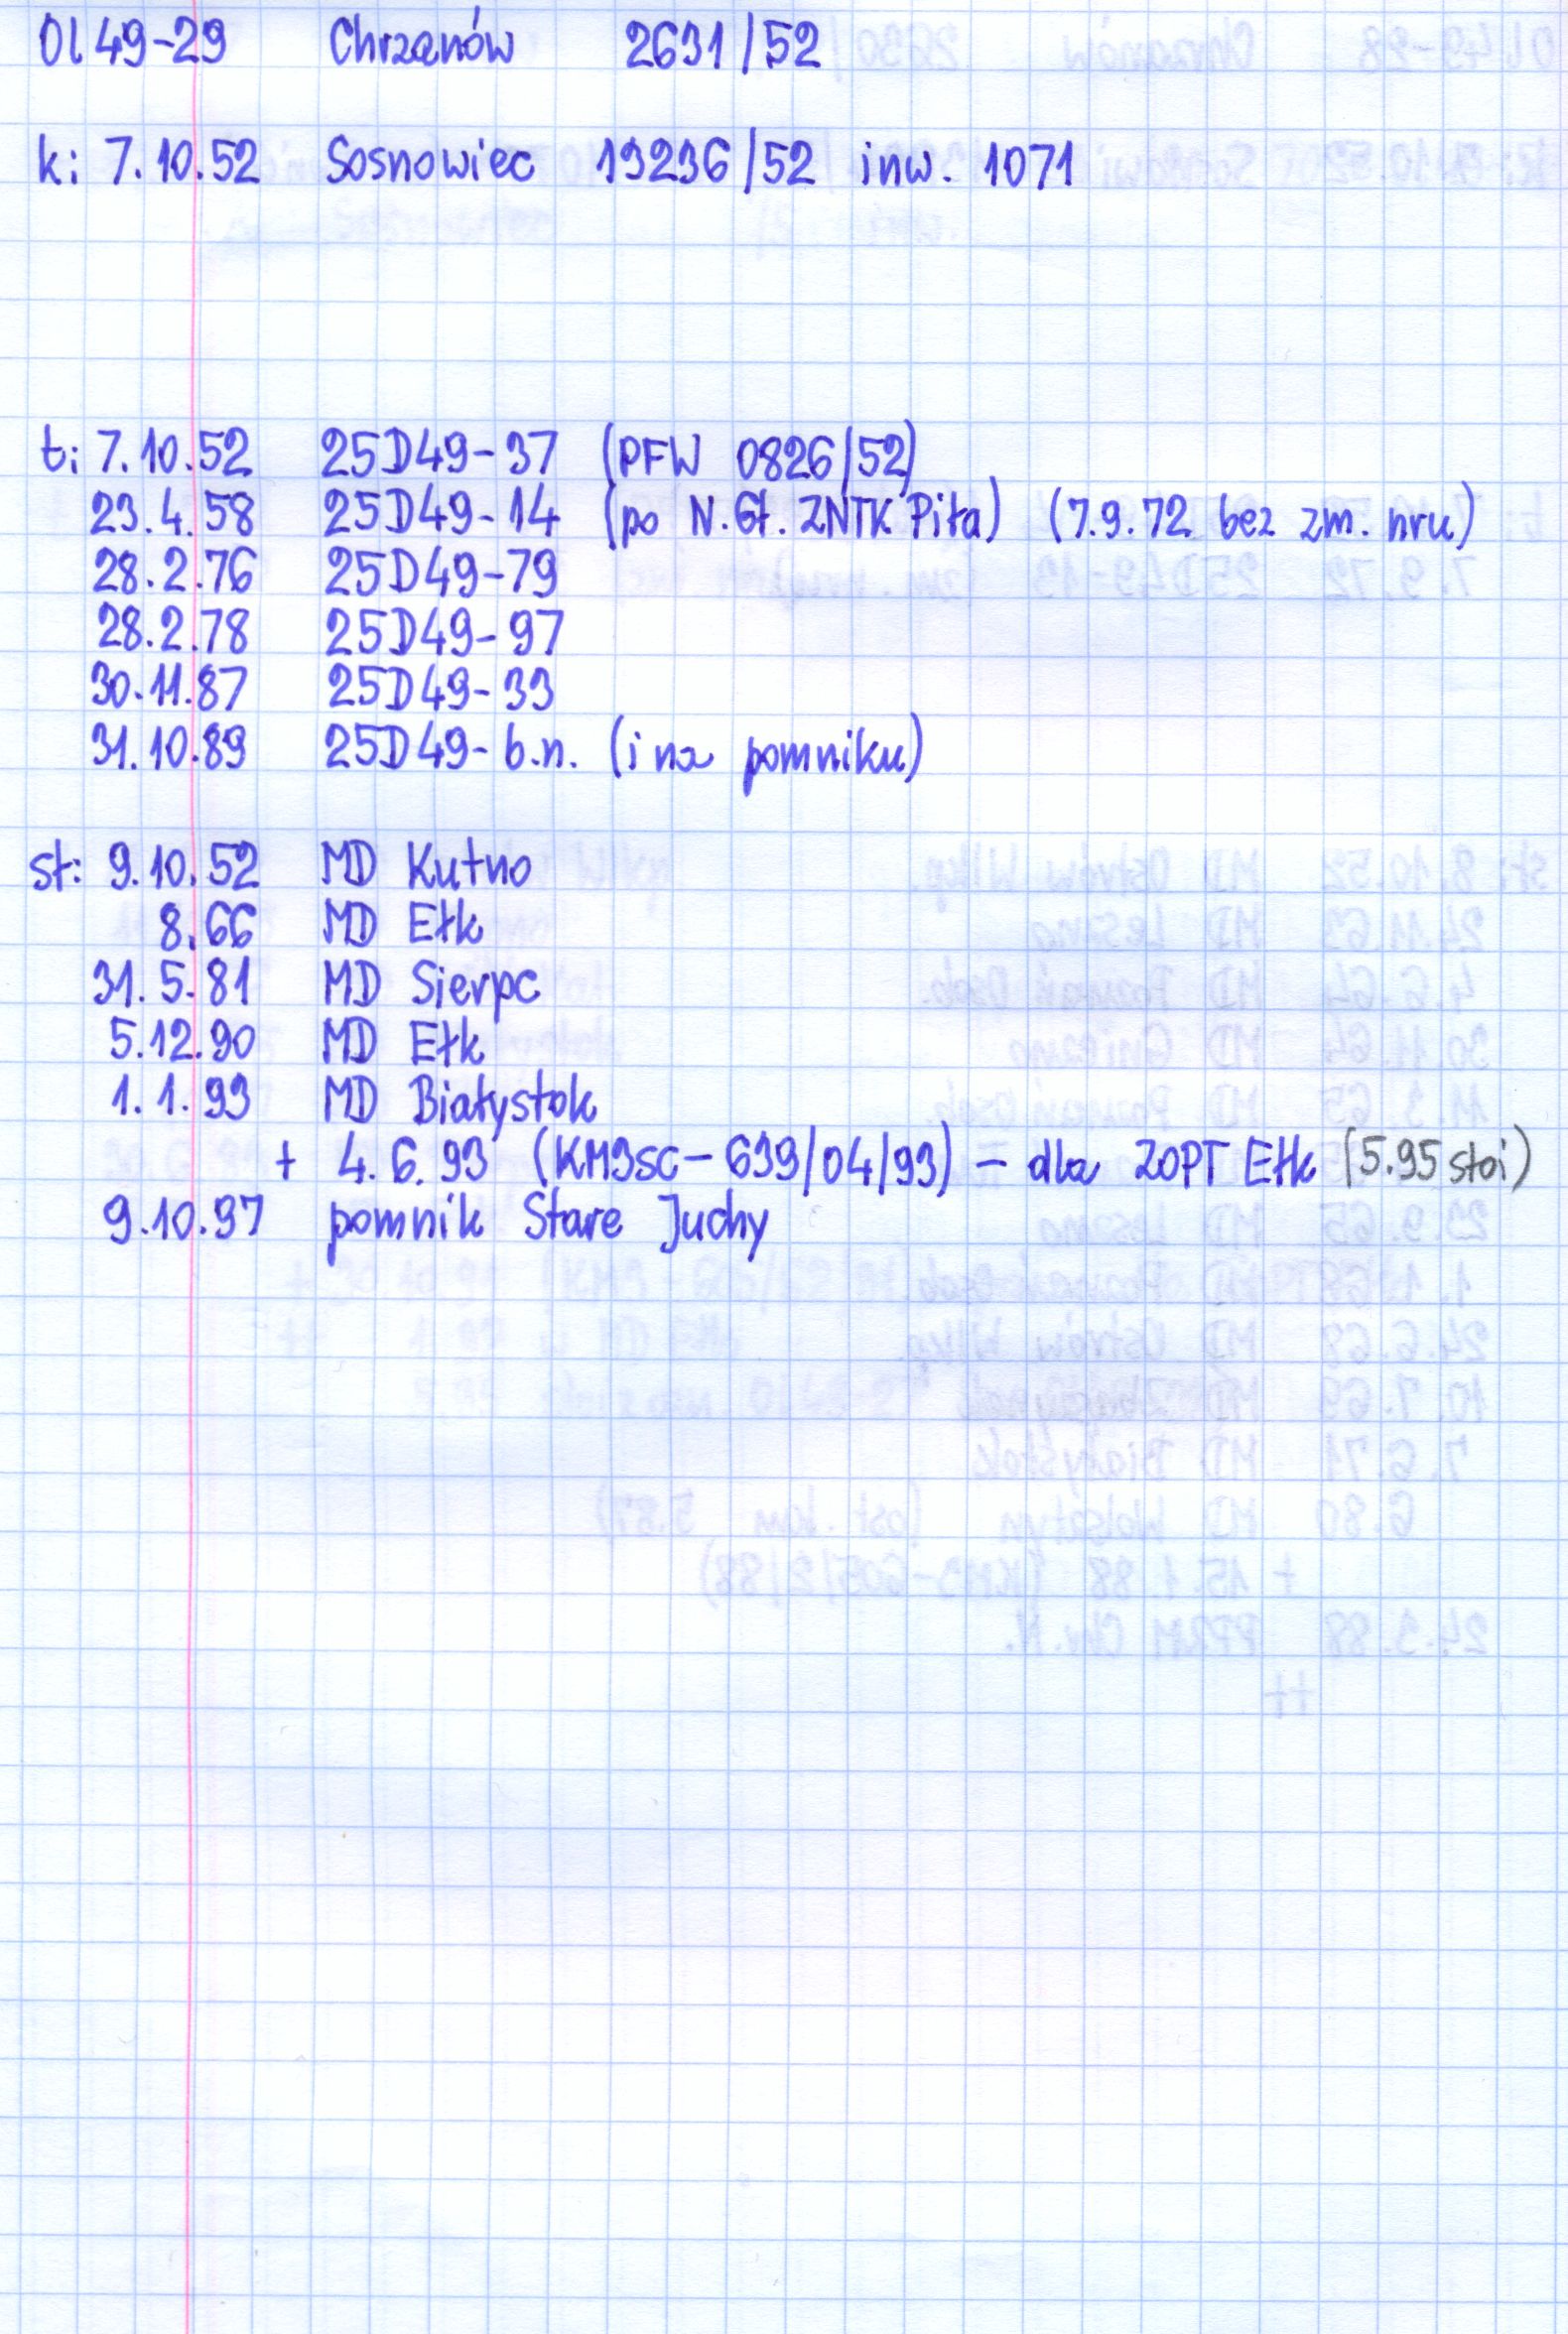 Ol 49-29 Chrzanów 2631/52
k: 7.10.52 Sosnowiec 19236/52 inw. 1071
t: 7.10.52 25D49-37 (PFW 0826/52)
23.4.58 25D49-14 (po N.Gł. ZNTK Piła) (7.9.72 bez zm. nru)
28.2.76 25D49-79
28.2.78 25D49-97
30.11.87 25D49-33
31.10.89 25D49-b.n. (i na pomniku)
st: 9.10.52 MD Kutno
8.66 MD Ełk
31.5.81 MD Sierpc
5.12.90 MD Ełk
1.1.93 MD Białystok
+ 4.6.93 (KM3sc-639/04/93) - dla ZOPT Ełk (5.95 stoi)
9.10.97 pomnik Stare Juchy